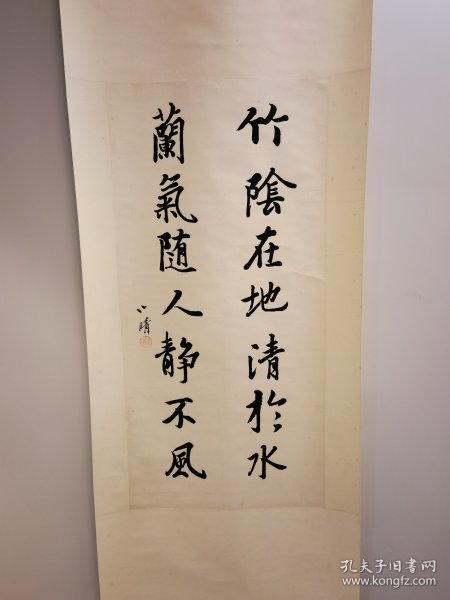 竹陰在地清於水
蘭氣随人静不風
孔夫子旧书网
www.kongfz.com